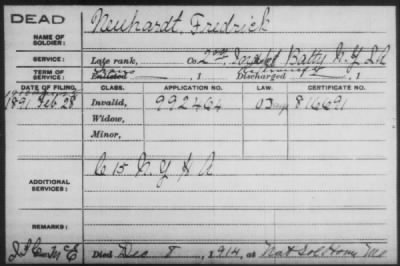 DEAD
NAME OF SOLDIER: Neuhardt, Fredrick
SERVICE: Late rank, Co. Batty N.Y. L A
TERM OF SERVICE: Enlisted , 1 Discharged , 1
DATE OF FILING. CLASS. APPLICATION NO. LAW. CERTIFICATE NO.
1891 Feb 28 Invalid, 992464 816691
Widow,
Minor,
ADDITIONAL SERVICES: C 15 N.Y. H A
REMARKS: Died Dec 8, 1914, at Nat Sol Home